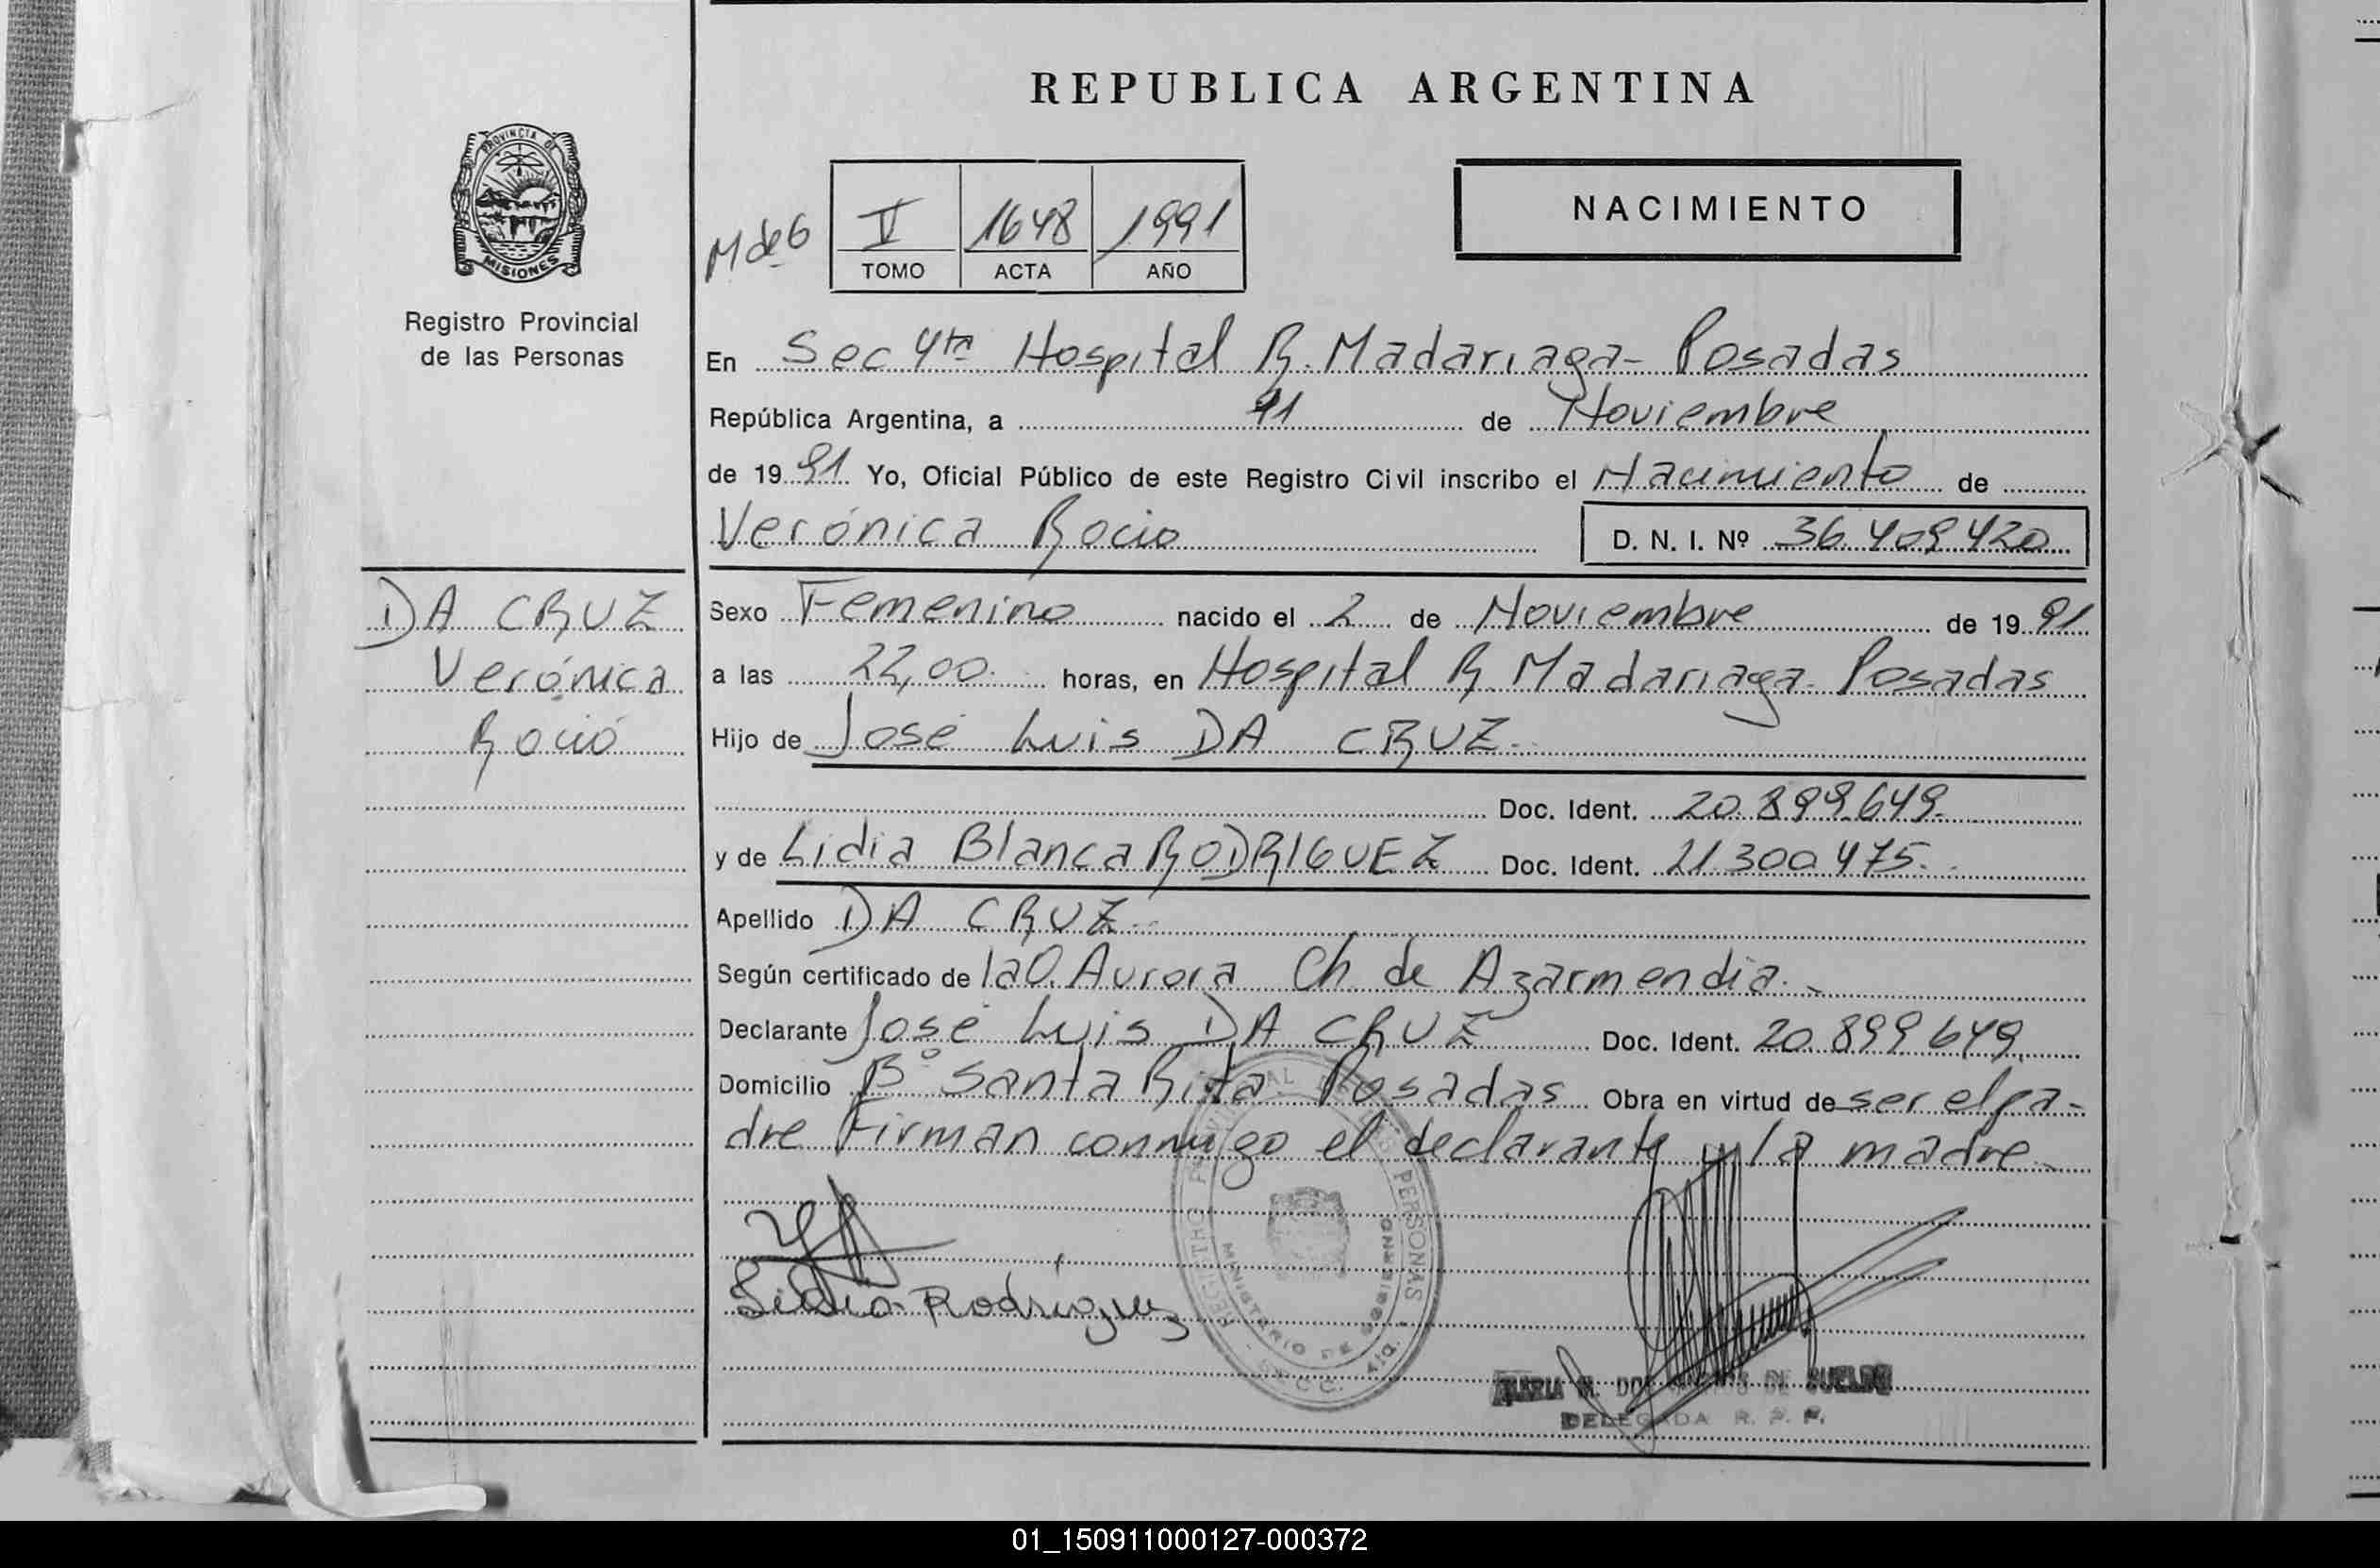 REPUBLICA ARGENTINA
PROVINCIA DE
MISIONES
Registro Provincial
de las Personas
NACIMIENTO
M de G
V 1648 1991
TOMO ACTA AÑO
En Sec 4ta Hospital R. Madariaga - Posadas
República Argentina, a 11 de Noviembre
de 1991 Yo, Oficial Público de este Registro Civil inscribo el Nacimiento de
Verónica Rocio D. N. I. Nº 36.409.420
DA CRUZ
Verónica
Rocío
Sexo Femenino nacido el 2 de Noviembre de 1991
a las 22,00 horas, en Hospital R. Madariaga - Posadas
Hijo de José Luis DA CRUZ.
Doc. Ident. 20.899.649.
y de Lidia Blanca RODRIGUEZ Doc. Ident. 21.300.475.
Apellido DA CRUZ.-
Según certificado de la O. Aurora Ch de Azarmendia.-
Declarante José Luis DA CRUZ Doc. Ident. 20.899.649
Domicilio Bº Santa Rita Posadas Obra en virtud de ser el pa-
dre Firman conmigo el declarante y la madre-
Lidia Rodriguez
PERSONAS
MINISTERIO DE GOBIERNO
MARIA DE SUELDO
DELEGADA R. P. P.
01_150911000127-000372